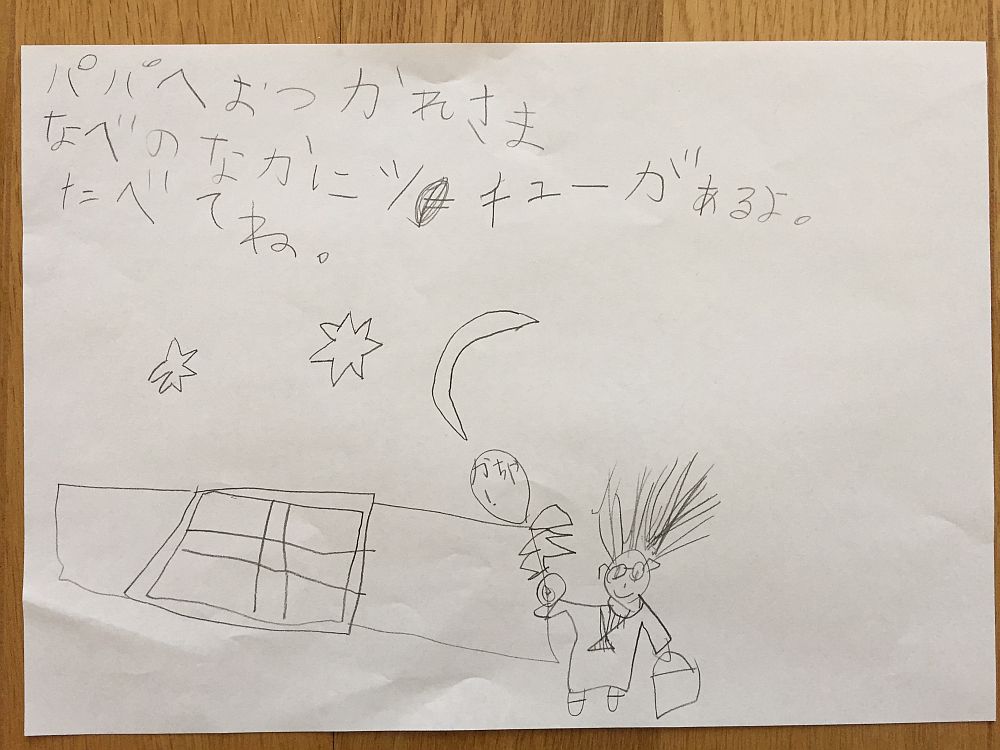 パパへおつかれさま
なべのなかにツキューがあるよ。
たべてね。
かちゃ